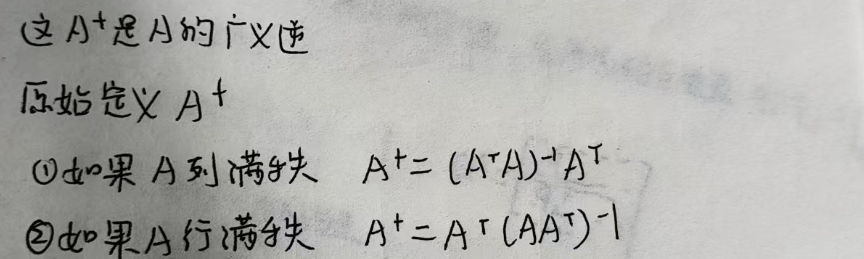 这 A⁺是A的广义逆
原始定义 A⁺
①如果 A 列满秩 A⁺=(AᵀA)⁻¹Aᵀ
②如果A行满秩 A⁺=Aᵀ(AAᵀ)⁻¹